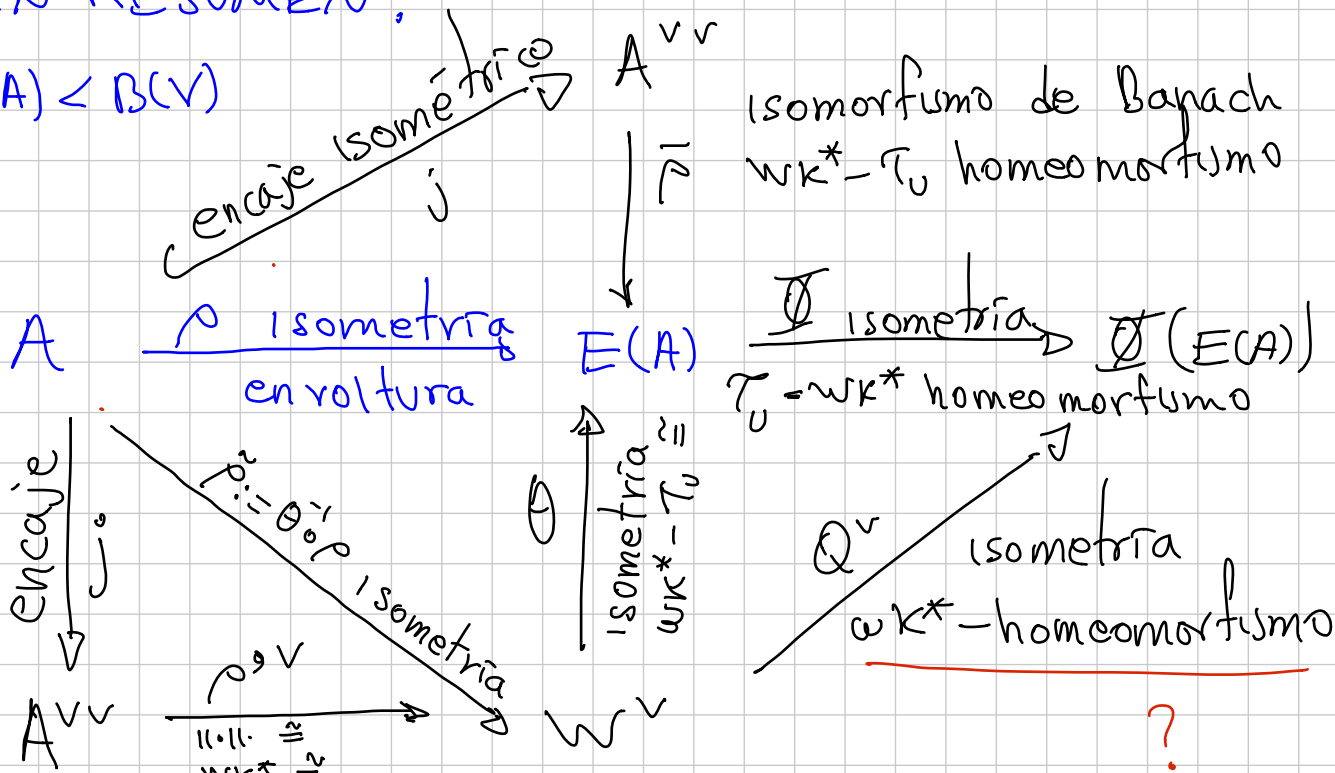 EN RESUMEN:
A) < B(V)
encaje isométrico
j
A^{vv}
ρ̄
isomorfismo de Banach
wk* - τ_u homeomorfismo
A
ρ isometría
envoltura
E(A)
Φ isometría
τ_u - wk* homeomorfismo
Φ(E(A))
encaje
j
ρ̃ := θ^{-1}∘ρ isometría
θ
isometría
wk* - τ_u ≅
Q^v
isometría
wk* - homeomorfismo
?
A^{vv}
‖·‖ ≅
W^v